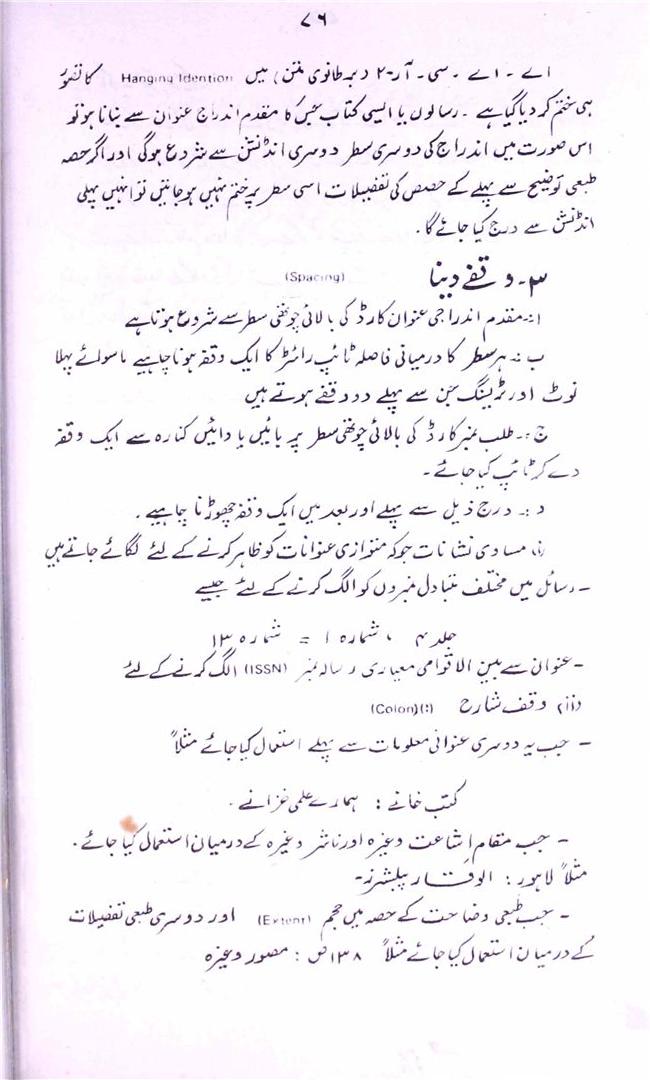 ۷۶
اے ۔ اے ۔ سی ۔ آر-۲ (برطانوی متن) میں Hanging Idention کا تصور
ہی ختم کر دیا گیا ہے ۔ رسالوں یا ایسی کتاب جس کا مقدم اندراج عنوان سے بنانا ہو تو
اس صورت میں اندراج کی دوسری سطر دوسری انڈنٹن سے شروع ہوگی اور اگر حصہ
طبعی توضیح سے پہلے کے حصص کی تفصیلات اسی سطر پر ختم نہیں ہو جاتیں تو انہیں پہلی
انڈنش سے درج کیا جائے گا ۔
۳۔ وقفے دینا (Spacing)
ا:۔ مقدم اندراجی عنوان کارڈ کی بالائی چوتھی سطر سے شروع ہوتا ہے
ب :۔ ہر سطر کا درمیانی فاصلہ ٹائپ رائٹر کا ایک وقفہ ہونا چاہیے ماسوائے پہلا
نوٹ اور ٹریسنگ جن سے پہلے دو دو قفے ہوتے ہیں
ج :۔ طلب نمبر کارڈ کی بالائی چوتھی سطر پر بائیں یا دائیں کنارہ سے ایک وقفہ
دے کر ٹائپ کیا جائے ۔
د :۔ درج ذیل سے پہلے اور بعد میں ایک وقفہ چھوڑنا چاہیے ۔
(i) مساوی نشانات جو کہ متوازی عنوانات کو ظاہر کرنے کے لئے لگائے جاتے ہیں
- رسائل میں مختلف متبادل نمبروں کو الگ کرنے کے لئے جیسے
جلد ۴ ، شمارہ ۱ = شمارہ ۱۳
- عنوان سے بین الاقوامی معیاری رسالہ نمبر (ISSN) الگ کرنے کے لئے
(ii) وقف شارح (:) (Colon)
- جب یہ دوسری عنوانی معلومات سے پہلے استعمال کیا جائے مثلاً
کتب خانے : ہمارے علمی خزانے ۔
- جب مقام اِشاعت وغیرہ اور ناشر وغیرہ کے درمیان استعمال کیا جائے ۔
مثلاً لاہور : الوقار پبلشرز ۔
- جب طبعی وضاحت کے حصہ میں حجم (Extent) اور دوسری طبعی تفصیلات
کے درمیان استعمال کیا جائے مثلاً ۱۳۸ ص : مصور وغیرہ